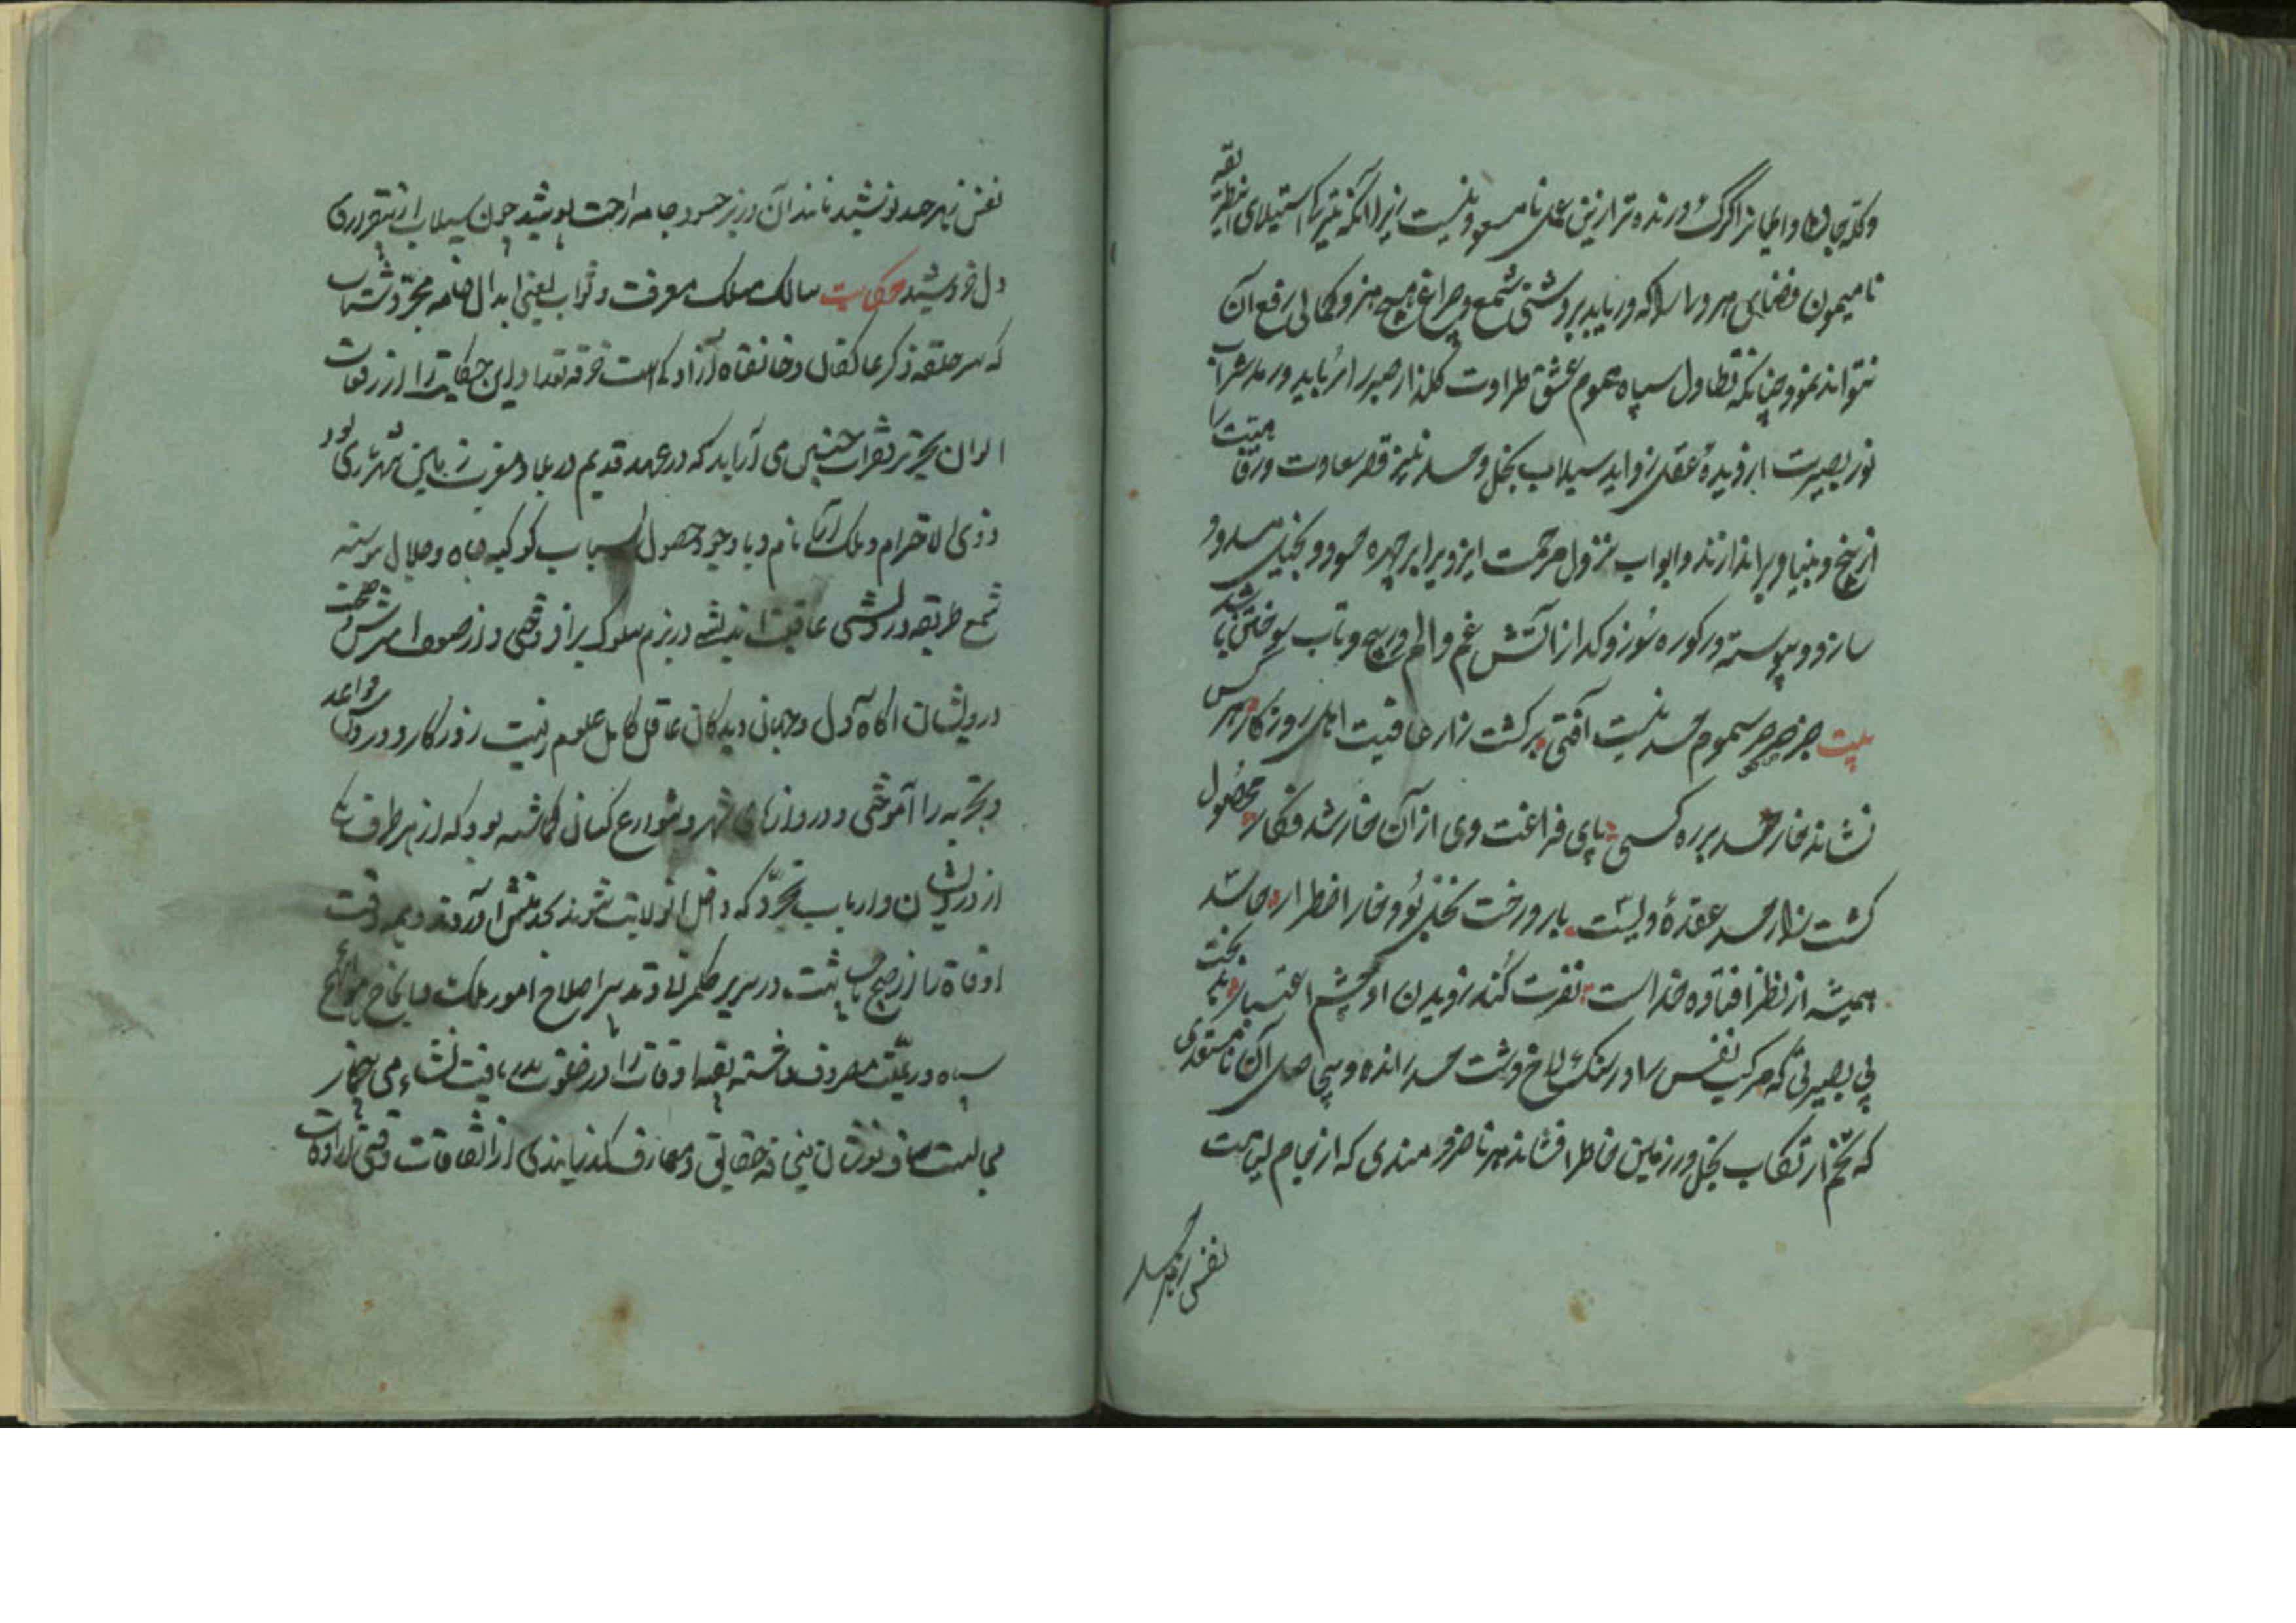 وکله جان و ایمانرا گرگ درنده‌تر ازین عمل نامسعود نیست زیرا که تیرکی استیلای این طریقه
نامیمون فضای هر دل را که دریابد بروشنی شمع و چراغ هیچ هنر و کمالی رفع آن
نتواند نمود چنانکه تطاول سپاه هموم عشق طراوت گلذار صبر را رباید و رمد شراب
نور بصیرت از دیدهٔ عقل زداید سیلاب بخل و حسد نیز قصر سعادت و رفاهیت را
از بیخ و بنیاد براندازند و ابواب نزول مرحمت ایزدی را بر چهره حسود و بخیل مسدود
سازد و پیوسته در کوره سوز و گداز از آتش غم و الم در پیچ و تاب سوختن باشد
بیت جز صرصر سموم حسد نیست آفتی بر کشت زار عافیت اهل روزگار هر کس
نشاند خار حسد بر ره کسی پای فراغت وی از آن خار شد فکار محصول
کشت زار حسد عقدهٔ دلیست بار درخت بخل بود خار اضطرار حاسد
همیشه از نظر افتاده خداست نفرت کند ز دیدن او چشم اعتبار بدبخت
بی بصیرتی که مرکب نفس را در سنگلاخ دشت حسد رانده و بیحاصل آن نامستعدی
که تخم ارتکاب بخل در زمین خاطر افشاند هر ناخردمندی که از جام لیامت
نفس زهر حسد
نفس زهر حسد نوشید مانند آن وزیر حسود جامه از جت پوشید چون سیلاب از بیقراری
دل خروشید حکایت سالک مسلک معرفت و ثواب یعنی ابدال خامه مجرد شتاب
که سر حلقه ذکر عالم قال و خانقاه آزادگی است خرقه تعداد این حکایت را از رقعات
الوان تحریر فقرات چنین می آراید که در عهد قدیم در بلاد مغرب زمین شهریاری بود
ذوی الاحترام و ملک آرای نام و با وجود حصول اسباب کوکبه جاه و جلال پیوسته
شمع طریقه درویشی عاقبت اندیشی در بزم سلوک برافروختی و از صفوت امزش و صحبت
درویشان آگاه دل و جهان دیدگان عاقل کامل علوم زینت روزگار و درونی قواعد
و تجربه را آموختی و در دروازهای شهر و شوارع کسان گماشته بود که از هر طرف یکی
از درویشان و ارباب تجرد که داخل آن ولایت شوند بخدمتش آوردند و همه وقت
اوقات را از صبح تا شب در سریر حکمرانی و تدبیر اصلاح امور مملکت و انجاح حوائج
سپاه و رعیت مصروف داشته بقیه اوقات را در خلوت بدریافت نشاء می همخانه
مجالست صاف نوشان میخانه حقایق و معارف گذرانیدی از اتفاقات وقتی از اوقات